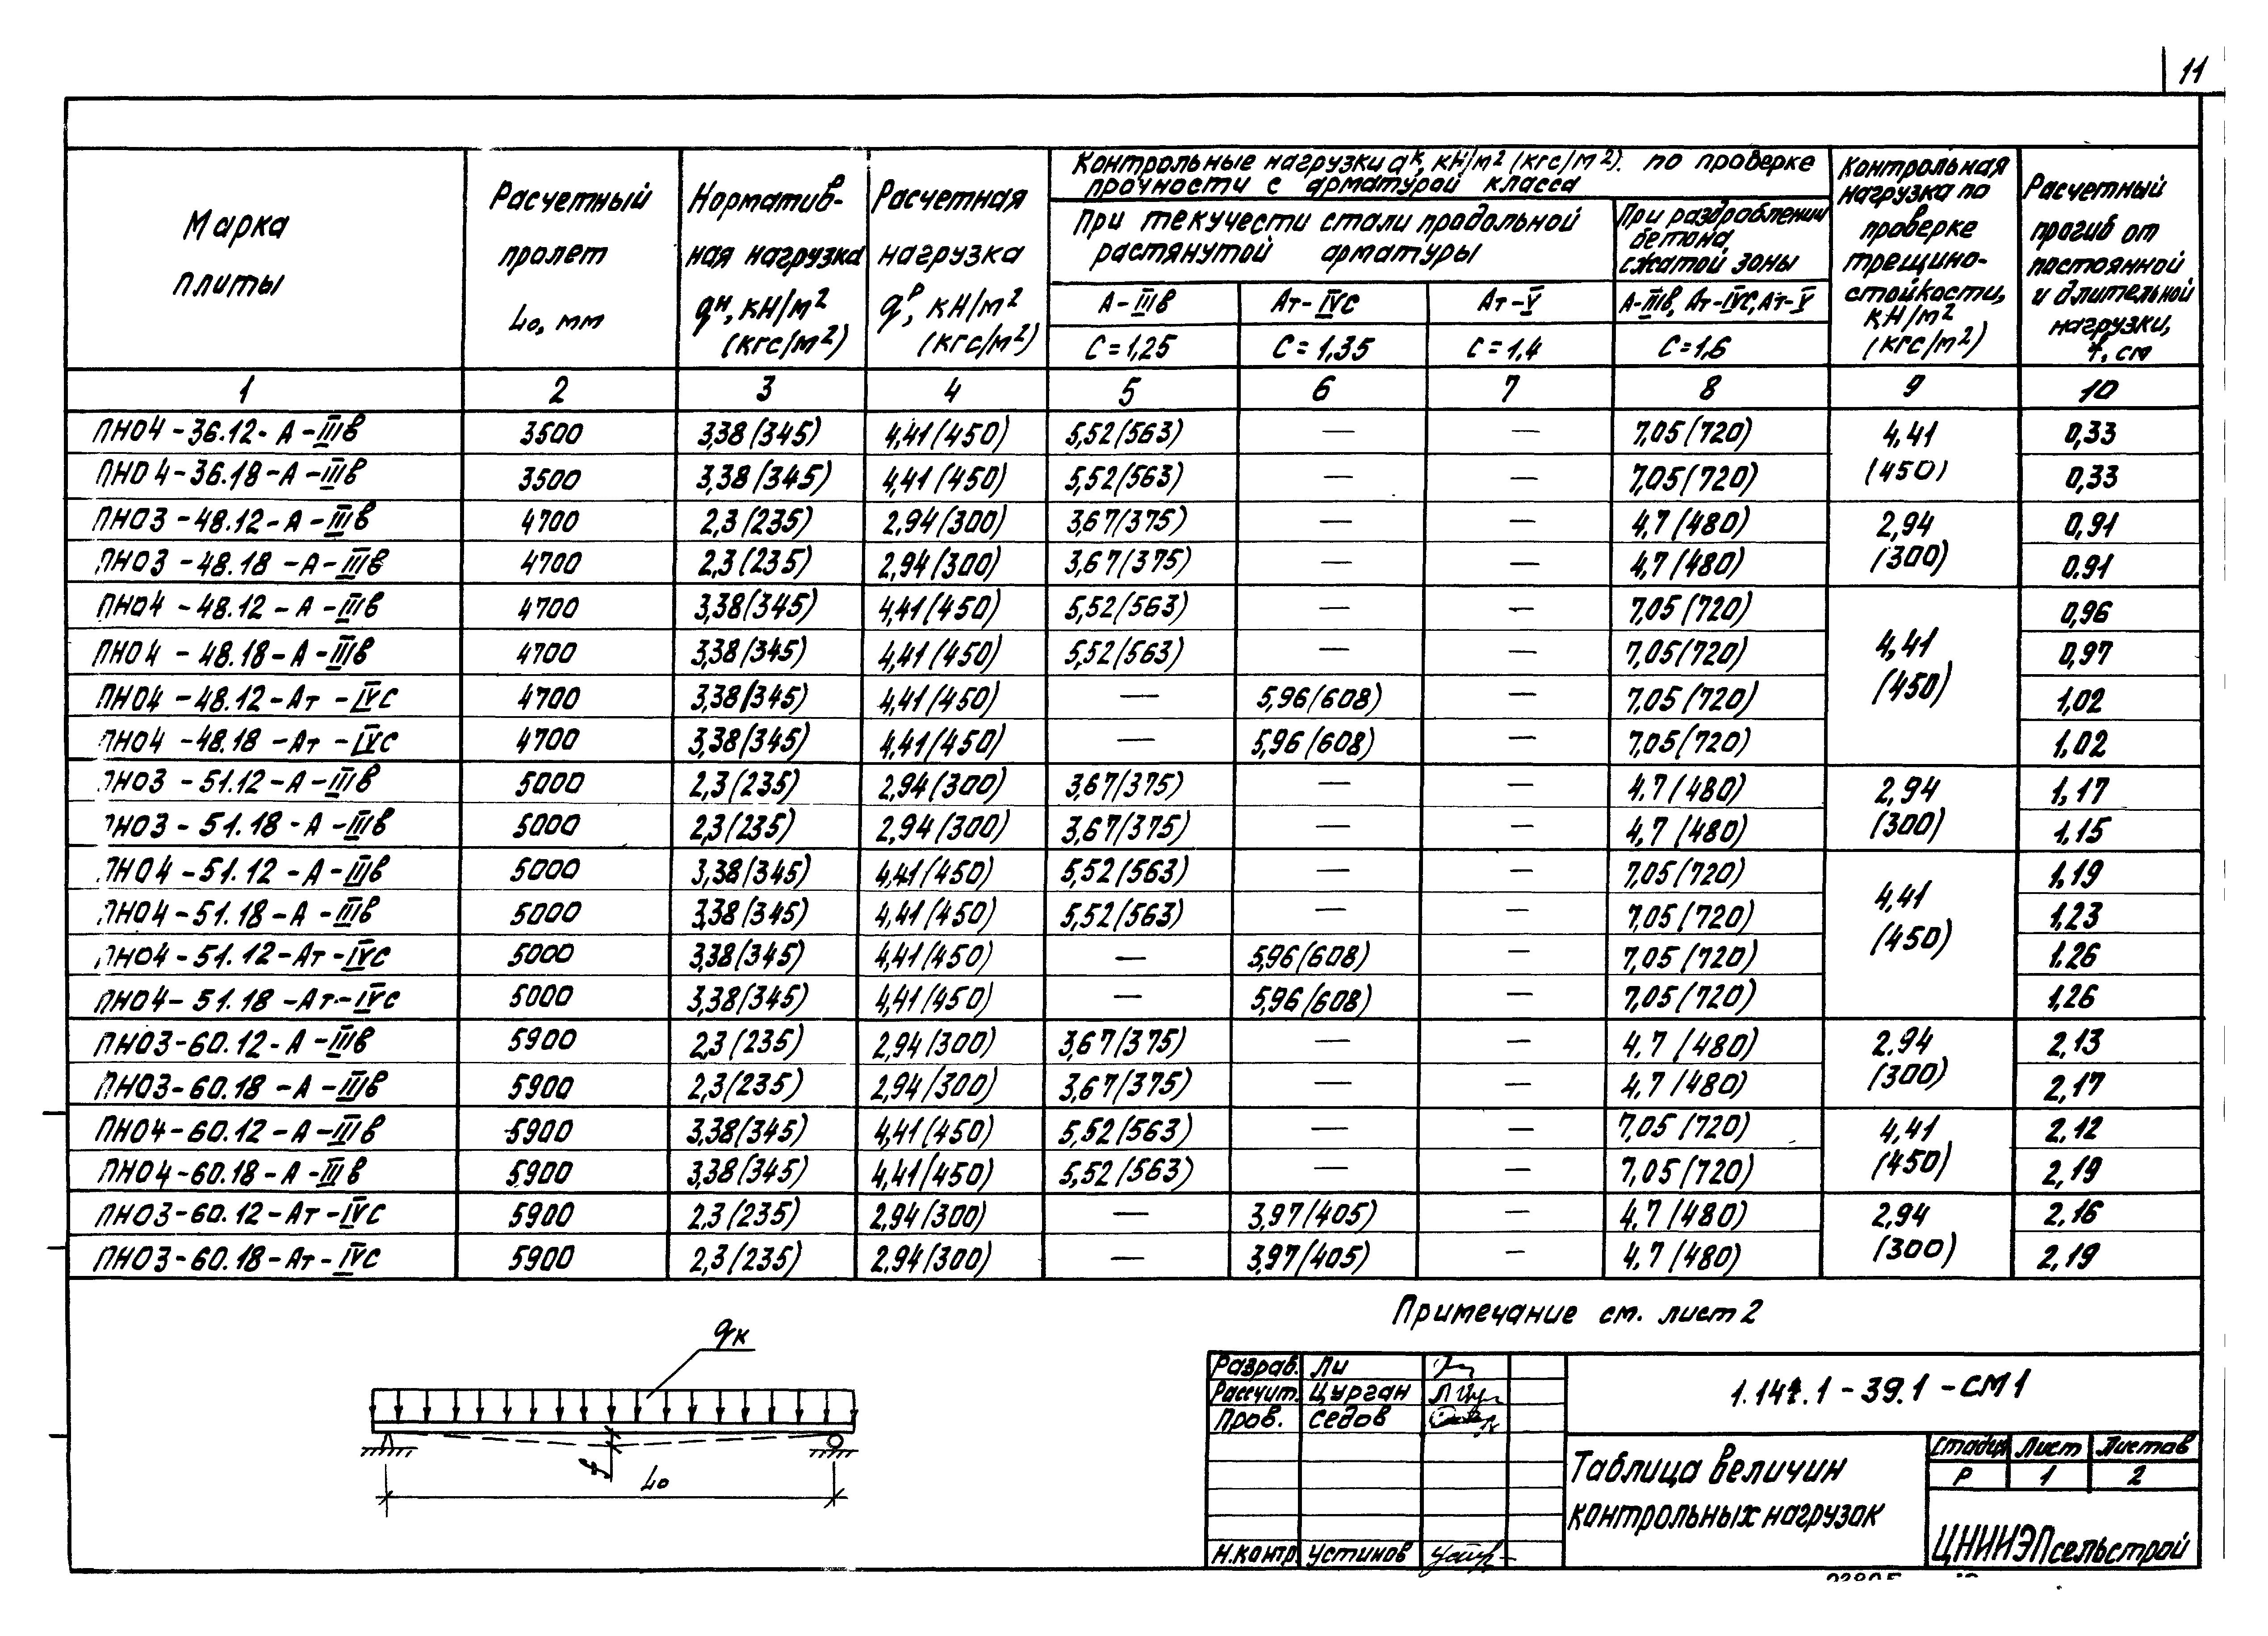 11
Марка плиты
Расчетный пролет L₀, мм
Норматив-ная нагрузка qн, кН/м² (кгс/м²)
Расчетная нагрузка qр, кН/м² (кгс/м²)
Контрольные нагрузки qк, кН/м² (кгс/м²). по проверке прочности с арматурой класса
При текучести стали продольной растянутой арматуры
При раздроблении бетона сжатой зоны
Контрольная нагрузка по проверке трещино-стойкости, кН/м² (кгс/м²)
Расчетный прогиб от постоянной и длительной нагрузки, f, см
А-IIIв Ат-IVС Ат-V А-IIIв, Ат-IVС, Ат-V
С=1,25 С=1,35 С=1,4 С=1,6
1 2 3 4 5 6 7 8 9 10
ПНО4-36.12-А-IIIв 3500 3,38(345) 4,41(450) 5,52(563) — — 7,05(720) 4,41 0,33
ПНО4-36.18-А-IIIв 3500 3,38(345) 4,41(450) 5,52(563) — — 7,05(720) (450) 0,33
ПНО3-48.12-А-IIIв 4700 2,3(235) 2,94(300) 3,67(375) — — 4,7(480) 2,94 0,91
ПНО3-48.18-А-IIIв 4700 2,3(235) 2,94(300) 3,67(375) — — 4,7(480) (300) 0.91
ПНО4-48.12-А-IIIв 4700 3,38(345) 4,41(450) 5,52(563) — — 7,05(720) 0,96
ПНО4-48.18-А-IIIв 4700 3,38(345) 4,41(450) 5,52(563) — — 7,05(720) 4,41 0,97
ПНО4-48.12-Ат-IVС 4700 3,38(345) 4,41(450) — 5,96(608) — 7,05(720) (450) 1,02
ПНО4-48.18-Ат-IVС 4700 3,38(345) 4,41(450) — 5,96(608) — 7,05(720) 1,02
ПНО3-51.12-А-IIIв 5000 2,3(235) 2,94(300) 3,67(375) — — 4.7(480) 2,94 1,17
ПНО3-51.18-А-IIIв 5000 2,3(235) 2,94(300) 3,67(375) — — 4,7(480) (300) 1,15
ПНО4-51.12-А-IIIв 5000 3,38(345) 4,41(450) 5,52(563) — — 7,05(720) 1,19
ПНО4-51.18-А-IIIв 5000 3,38(345) 4,41(450) 5,52(563) — — 7,05(720) 4,41 1,23
ПНО4-51.12-Ат-IVС 5000 3,38(345) 4,41(450) — 5,96(608) — 7,05(720) (450) 1.26
ПНО4-51.18-Ат-IVС 5000 3,38(345) 4,41(450) — 5,96(608) — 7,05(720) 1,26
ПНО3-60.12-А-IIIв 5900 2,3(235) 2,94(300) 3,67(375) — — 4.7(480) 2.94 2,13
ПНО3-60.18-А-IIIв 5900 2,3(235) 2,94(300) 3,67(375) — — 4,7(480) (300) 2,17
ПНО4-60.12-А-IIIв 5900 3,38(345) 4,41(450) 5,52(563) — — 7,05(720) 4,41 2,12
ПНО4-60.18-А-IIIв 5900 3,38(345) 4,41(450) 5,52(563) — — 7,05(720) (450) 2,19
ПНО3-60.12-Ат-IVС 5900 2,3(235) 2,94(300) — 3,97(405) — 4,7(480) 2,94 2,16
ПНО3-60.18-Ат-IVС 5900 2,3(235) 2,94(300) — 3,97(405) — 4,7(480) (300) 2,19
Примечание см. лист 2
qк
f
L₀
Разраб. Ли
Рассчит. Цурган
Пров. Седов
Н.контр Устинов
1.141.1-39.1-СМ1
Таблица величин
контрольных нагрузок
Стадия Лист Листов
Р 1 2
ЦНИИЭПсельстрой